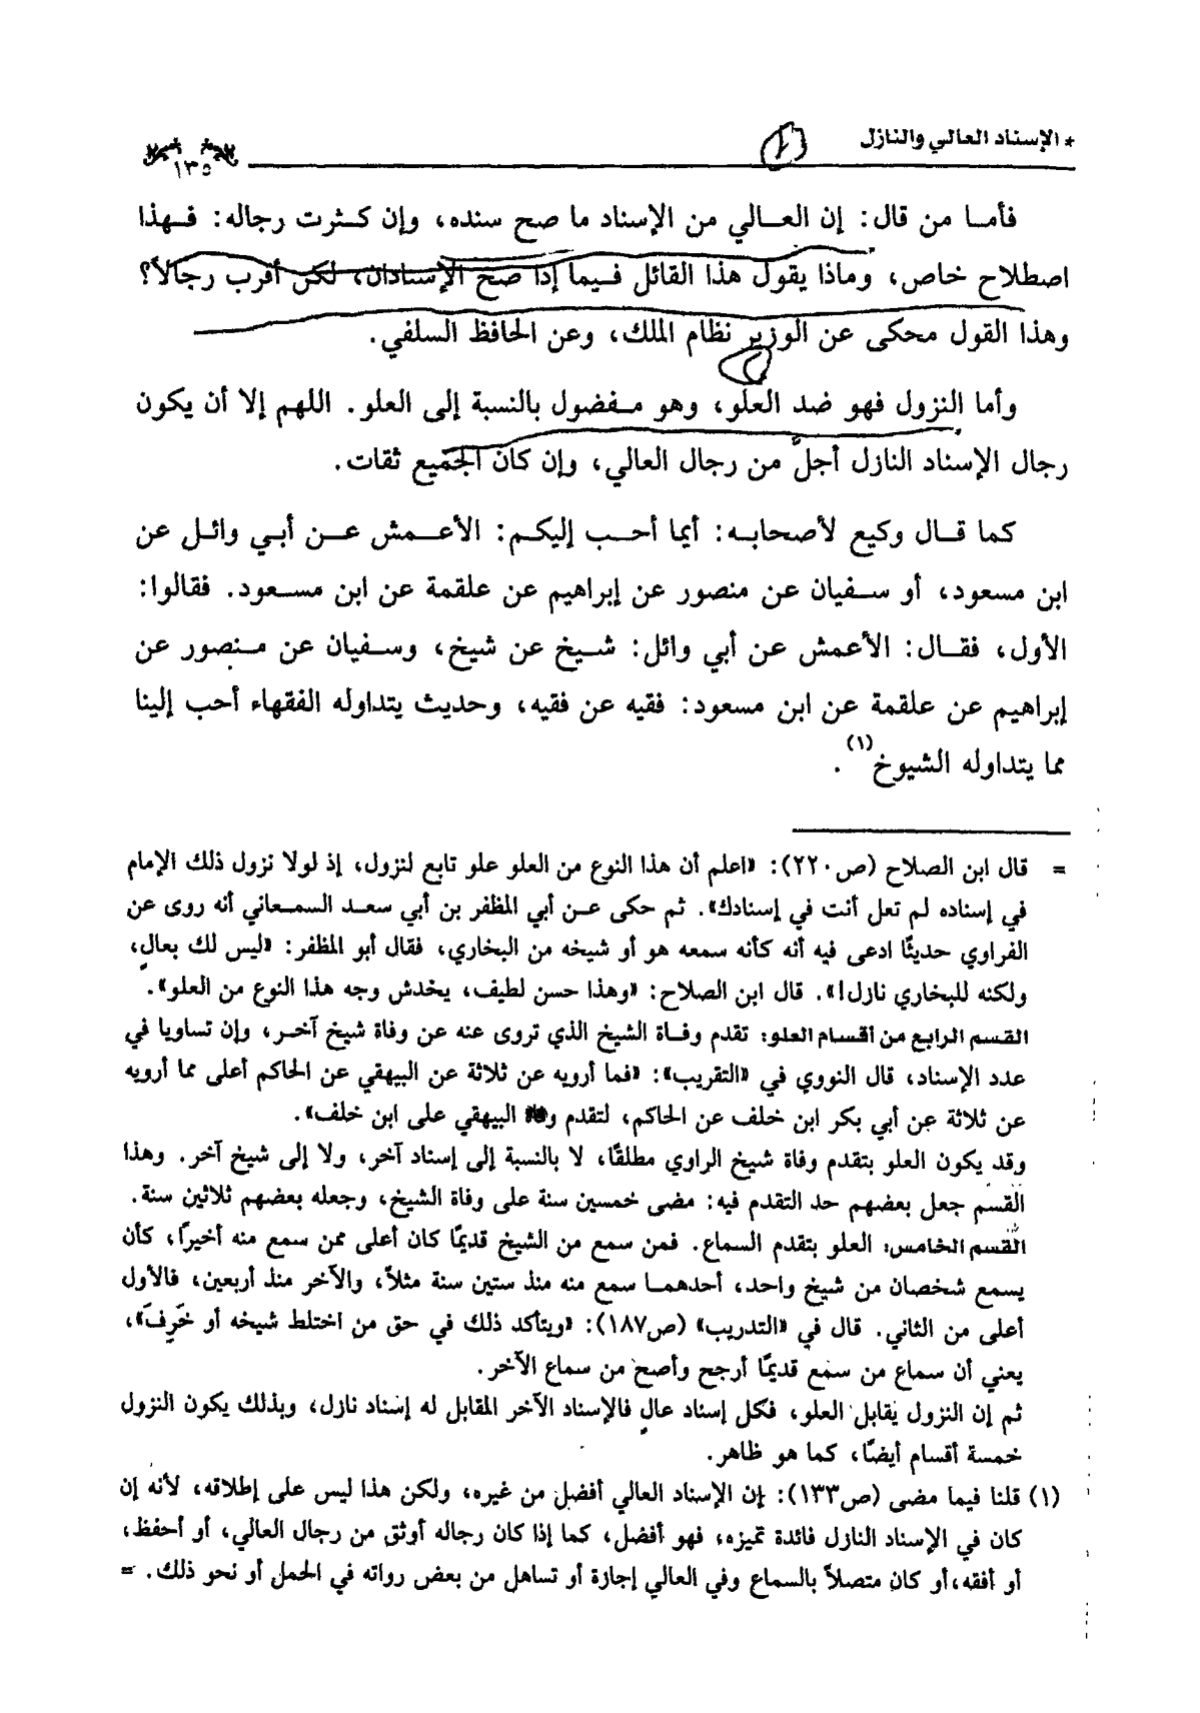 * الإسناد العالي والنازل
١٣٥
فأما من قال: إن العالي من الإسناد ما صح سنده، وإن كثرت رجاله: فهذا
اصطلاح خاص، وماذا يقول هذا القائل فيما إذا صح الإسنادان، لكن أقرب رجالاً؟
وهذا القول محكى عن الوزير نظام الملك، وعن الحافظ السلفي.
وأما النزول فهو ضد العلو، وهو مفضول بالنسبة إلى العلو. اللهم إلا أن يكون
رجال الإسناد النازل أجلّ من رجال العالي، وإن كان الجميع ثقات.
كما قال وكيع لأصحابه: أيما أحب إليكم: الأعمش عن أبي وائل عن
ابن مسعود، أو سفيان عن منصور عن إبراهيم عن علقمة عن ابن مسعود. فقالوا:
الأول، فقال: الأعمش عن أبي وائل: شيخ عن شيخ، وسفيان عن منصور عن
إبراهيم عن علقمة عن ابن مسعود: فقيه عن فقيه، وحديث يتداوله الفقهاء أحب إلينا
مما يتداوله الشيوخ(١).
= قال ابن الصلاح (ص٢٢٠): «اعلم أن هذا النوع من العلو علو تابع لنزول، إذ لولا نزول ذلك الإمام
في إسناده لم تعل أنت في إسنادك». ثم حكى عن أبي المظفر بن أبي سعد السمعاني أنه روى عن
الفراوي حديثًا ادعى فيه أنه كأنه سمعه هو أو شيخه من البخاري، فقال أبو المظفر: «ليس لك بعالٍ،
ولكنه للبخاري نازل!». قال ابن الصلاح: «وهذا حسن لطيف، يخدش وجه هذا النوع من العلو».
القسم الرابع من أقسام العلو: تقدم وفاة الشيخ الذي تروى عنه عن وفاة شيخ آخر، وإن تساويا في
عدد الإسناد، قال النووي في «التقريب»: «فما أرويه عن ثلاثة عن البيهقي عن الحاكم أعلى مما أرويه
عن ثلاثة عن أبي بكر ابن خلف عن الحاكم، لتقدم البيهقي على ابن خلف».
وقد يكون العلو بتقدم وفاة شيخ الراوي مطلقًا، لا بالنسبة إلى إسناد آخر، ولا إلى شيخ آخر. وهذا
القسم جعل بعضهم حد التقدم فيه: مضى خمسين سنة على وفاة الشيخ، وجعله بعضهم ثلاثين سنة.
القسم الخامس: العلو بتقدم السماع. فمن سمع من الشيخ قديمًا كان أعلى ممن سمع منه أخيرًا، كأن
يسمع شخصان من شيخ واحد، أحدهما سمع منه منذ ستين سنة مثلاً، والآخر منذ أربعين، فالأول
أعلى من الثاني. قال في «التدريب» (ص١٨٧): «ويتأكد ذلك في حق من اختلط شيخه أو خَرِفَ»،
يعني أن سماع من سمع قديمًا أرجح وأصح من سماع الآخر.
ثم إن النزول يقابل العلو، فكل إسناد عالٍ فالإسناد الآخر المقابل له إسناد نازل، وبذلك يكون النزول
خمسة أقسام أيضًا، كما هو ظاهر.
(١) قلنا فيما مضى (ص١٣٣): إن الإسناد العالي أفضل من غيره، ولكن هذا ليس على إطلاقه، لأنه إن
كان في الإسناد النازل فائدة تميزه، فهو أفضل، كما إذا كان رجاله أوثق من رجال العالي، أو أحفظ،
أو أفقه، أو كان متصلاً بالسماع وفي العالي إجازة أو تساهل من بعض رواته في الحمل أو نحو ذلك. =